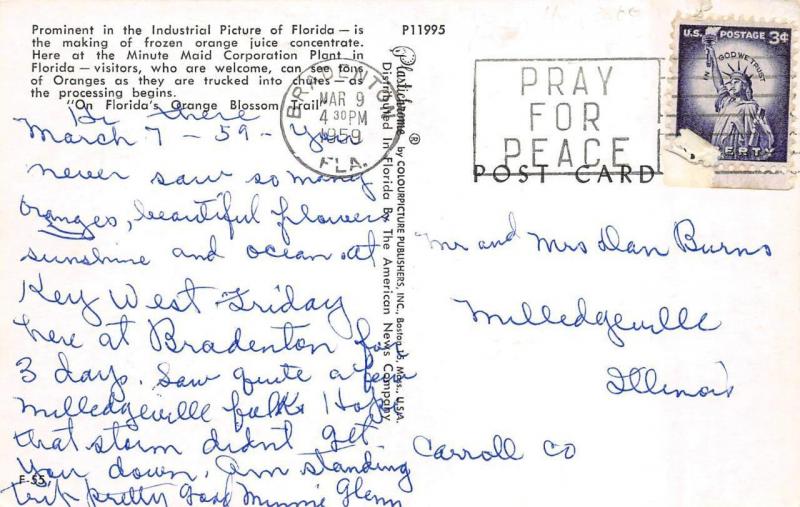 Prominent in the Industrial Picture of Florida — is
the making of frozen orange juice concentrate.
Here at the Minute Maid Corporation Plant in
Florida — visitors, who are welcome, can see tons
of Oranges as they are trucked into chutes — as
the processing begins.
"On Florida's Orange Blossom Trail"
P11995
BRADENTON
MAR 9
4 30 PM
1959
FLA.
PRAY
FOR
PEACE
U.S. POSTAGE 3¢
IN GOD WE TRUST
ERTY
POST CARD
Plastichrome ® by COLOURPICTURE PUBLISHERS, INC., Boston 15, Mass., U.S.A.
Distributed In Florida By The American News Company
Hi there
March 7 - 59 - You
never saw so many
oranges, beautiful flowers
sunshine and ocean. at
Key West Friday
here at Bradenton for
3 days. Saw quite a few
Milledgeville folks Hope
that storm didnt get
you down. Am standing
trip pretty good Minnie Glenn
F-55
Mr and Mrs Dan Burns
Milledgeville
Illinois
Carroll Co